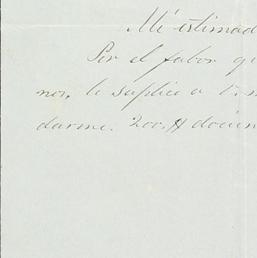 Mi estimad
Por el fabor qu
nos, le suplico a V. m
darme. 200 $ docien